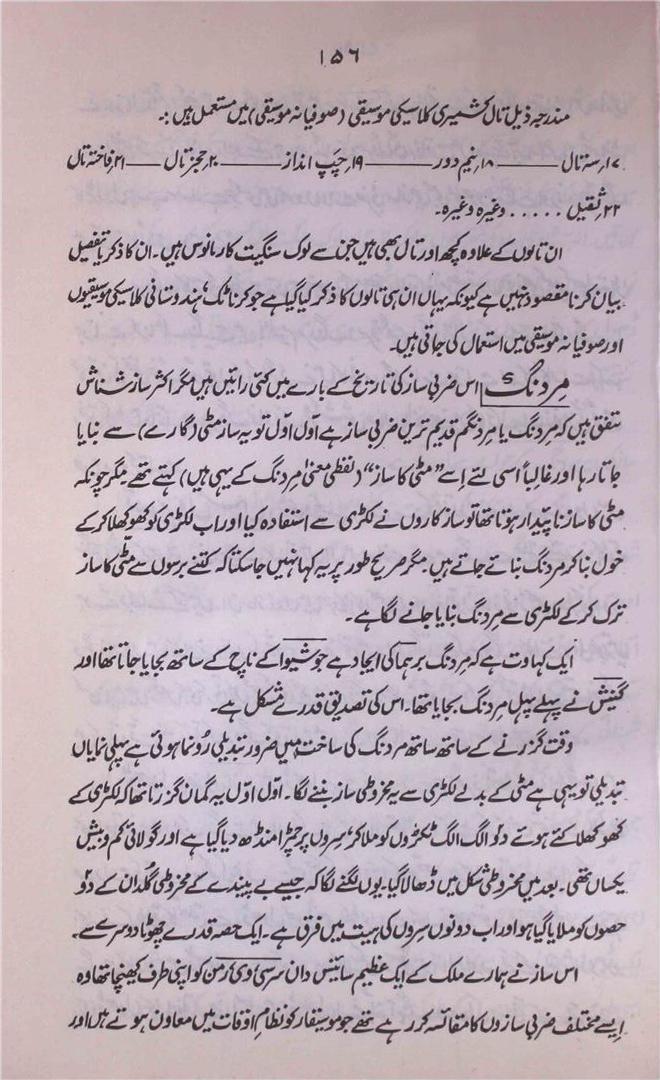 ۱۵۶
مندرجہ ذیل تال کشمیری کلاسیکی موسیقی (صوفیانہ موسیقی) میں مستعمل ہیں :۔
۱۷؍ سہ تال ——— ۱۸؍ نیم دور ——— ۱۹؍ چپ انداز ——— ۲۰؍ حجز تال —— ۲۱؍ فاختہ تال
۲۲؍ ثقیل ..... وغیرہ وغیرہ۔
ان تالوں کے علاوہ کچھ اور تال بھی ہیں جن سے لوک سنگیت کار مانوس ہیں۔ ان کا ذکر بالتفصیل
بیان کرنا مقصود نہیں ہے کیونکہ یہاں ان ہی تالوں کا ذکر کیا گیا ہے جو کرناٹک، ہندوستانی کلاسیکی موسیقیوں
اور صوفیانہ موسیقی میں استعمال کی جاتی ہیں۔
مردنگ اس ضربی ساز کی تاریخ کے بارے میں کئی رائیں ہیں مگر اکثر ساز شناش
متفق ہیں کہ مردنگ یا مردنگم قدیم ترین ضربی ساز ہے اول اوّل تو یہ ساز مٹی (گارے) سے بنایا
جاتا رہا اور غالباً اسی لئے اِسے ”مٹی کا ساز“ (لفظی معنیٰ مردنگ کے یہی ہیں) کہتے تھے مگر چونکہ
مٹی کا ساز ناپیدار ہوتا تھا تو ساز کاروں نے لکڑی سے استفادہ کیا اور اب لکڑی کو کھوکھلا کر کے
خول بنا کر مردنگ بناتے جاتے ہیں۔ مگر صریح طور پر یہ کہا نہیں جا سکتا کہ کتنے برسوں سے مٹی کا ساز
ترک کر کے لکڑی سے مردنگ بنایا جانے لگا ہے۔
ایک کہاوت ہے کہ مردنگ برہما کی ایجاد ہے جو شیوا کے ناچ کے ساتھ بجایا جاتا تھا اور
گنیش نے پہلے پہل مردنگ بجایا تھا۔ اس کی تصدیق قدرے مشکل ہے۔
وقت گزرنے کے ساتھ ساتھ مردنگ کی ساخت میں ضرور تبدیلی رُونما ہوئی ہے پہلی نمایاں
تبدیلی تو یہی ہے مٹی کے بدلے لکڑی سے یہ مخروطی ساز بننے لگا۔ اول اوّل یہ گمان گزرتا تھا کہ لکڑی کے
کھوکھلا کئے ہوئے دو الگ الگ ٹکڑوں کو ملا کر، سِروں پر چمڑا منڈھ دیا گیا ہے اور گولائی کم و بیش
یکساں تھی۔ بعد میں مخروطی شکل میں ڈھالا گیا۔ یوں لگنے لگا کہ جیسے بے پیندے کے مخروطی گلدان کے دو
حصوں کو ملایا گیا ہو اور اب دونوں سروں کی ہیت میں فرق ہے۔ ایک حصہ قدرے چھوٹا دوسرے سے۔
اس ساز نے ہمارے ملک کے ایک عظیم سائنس دان سرسی وی رمن کو اپنی طرف کھینچا تھا وہ
ایسے مختلف ضربی سازوں کا مقائسہ کر رہے تھے جو موسیقار کو نظامِ اوقات میں معاون ہوتے ہیں اور